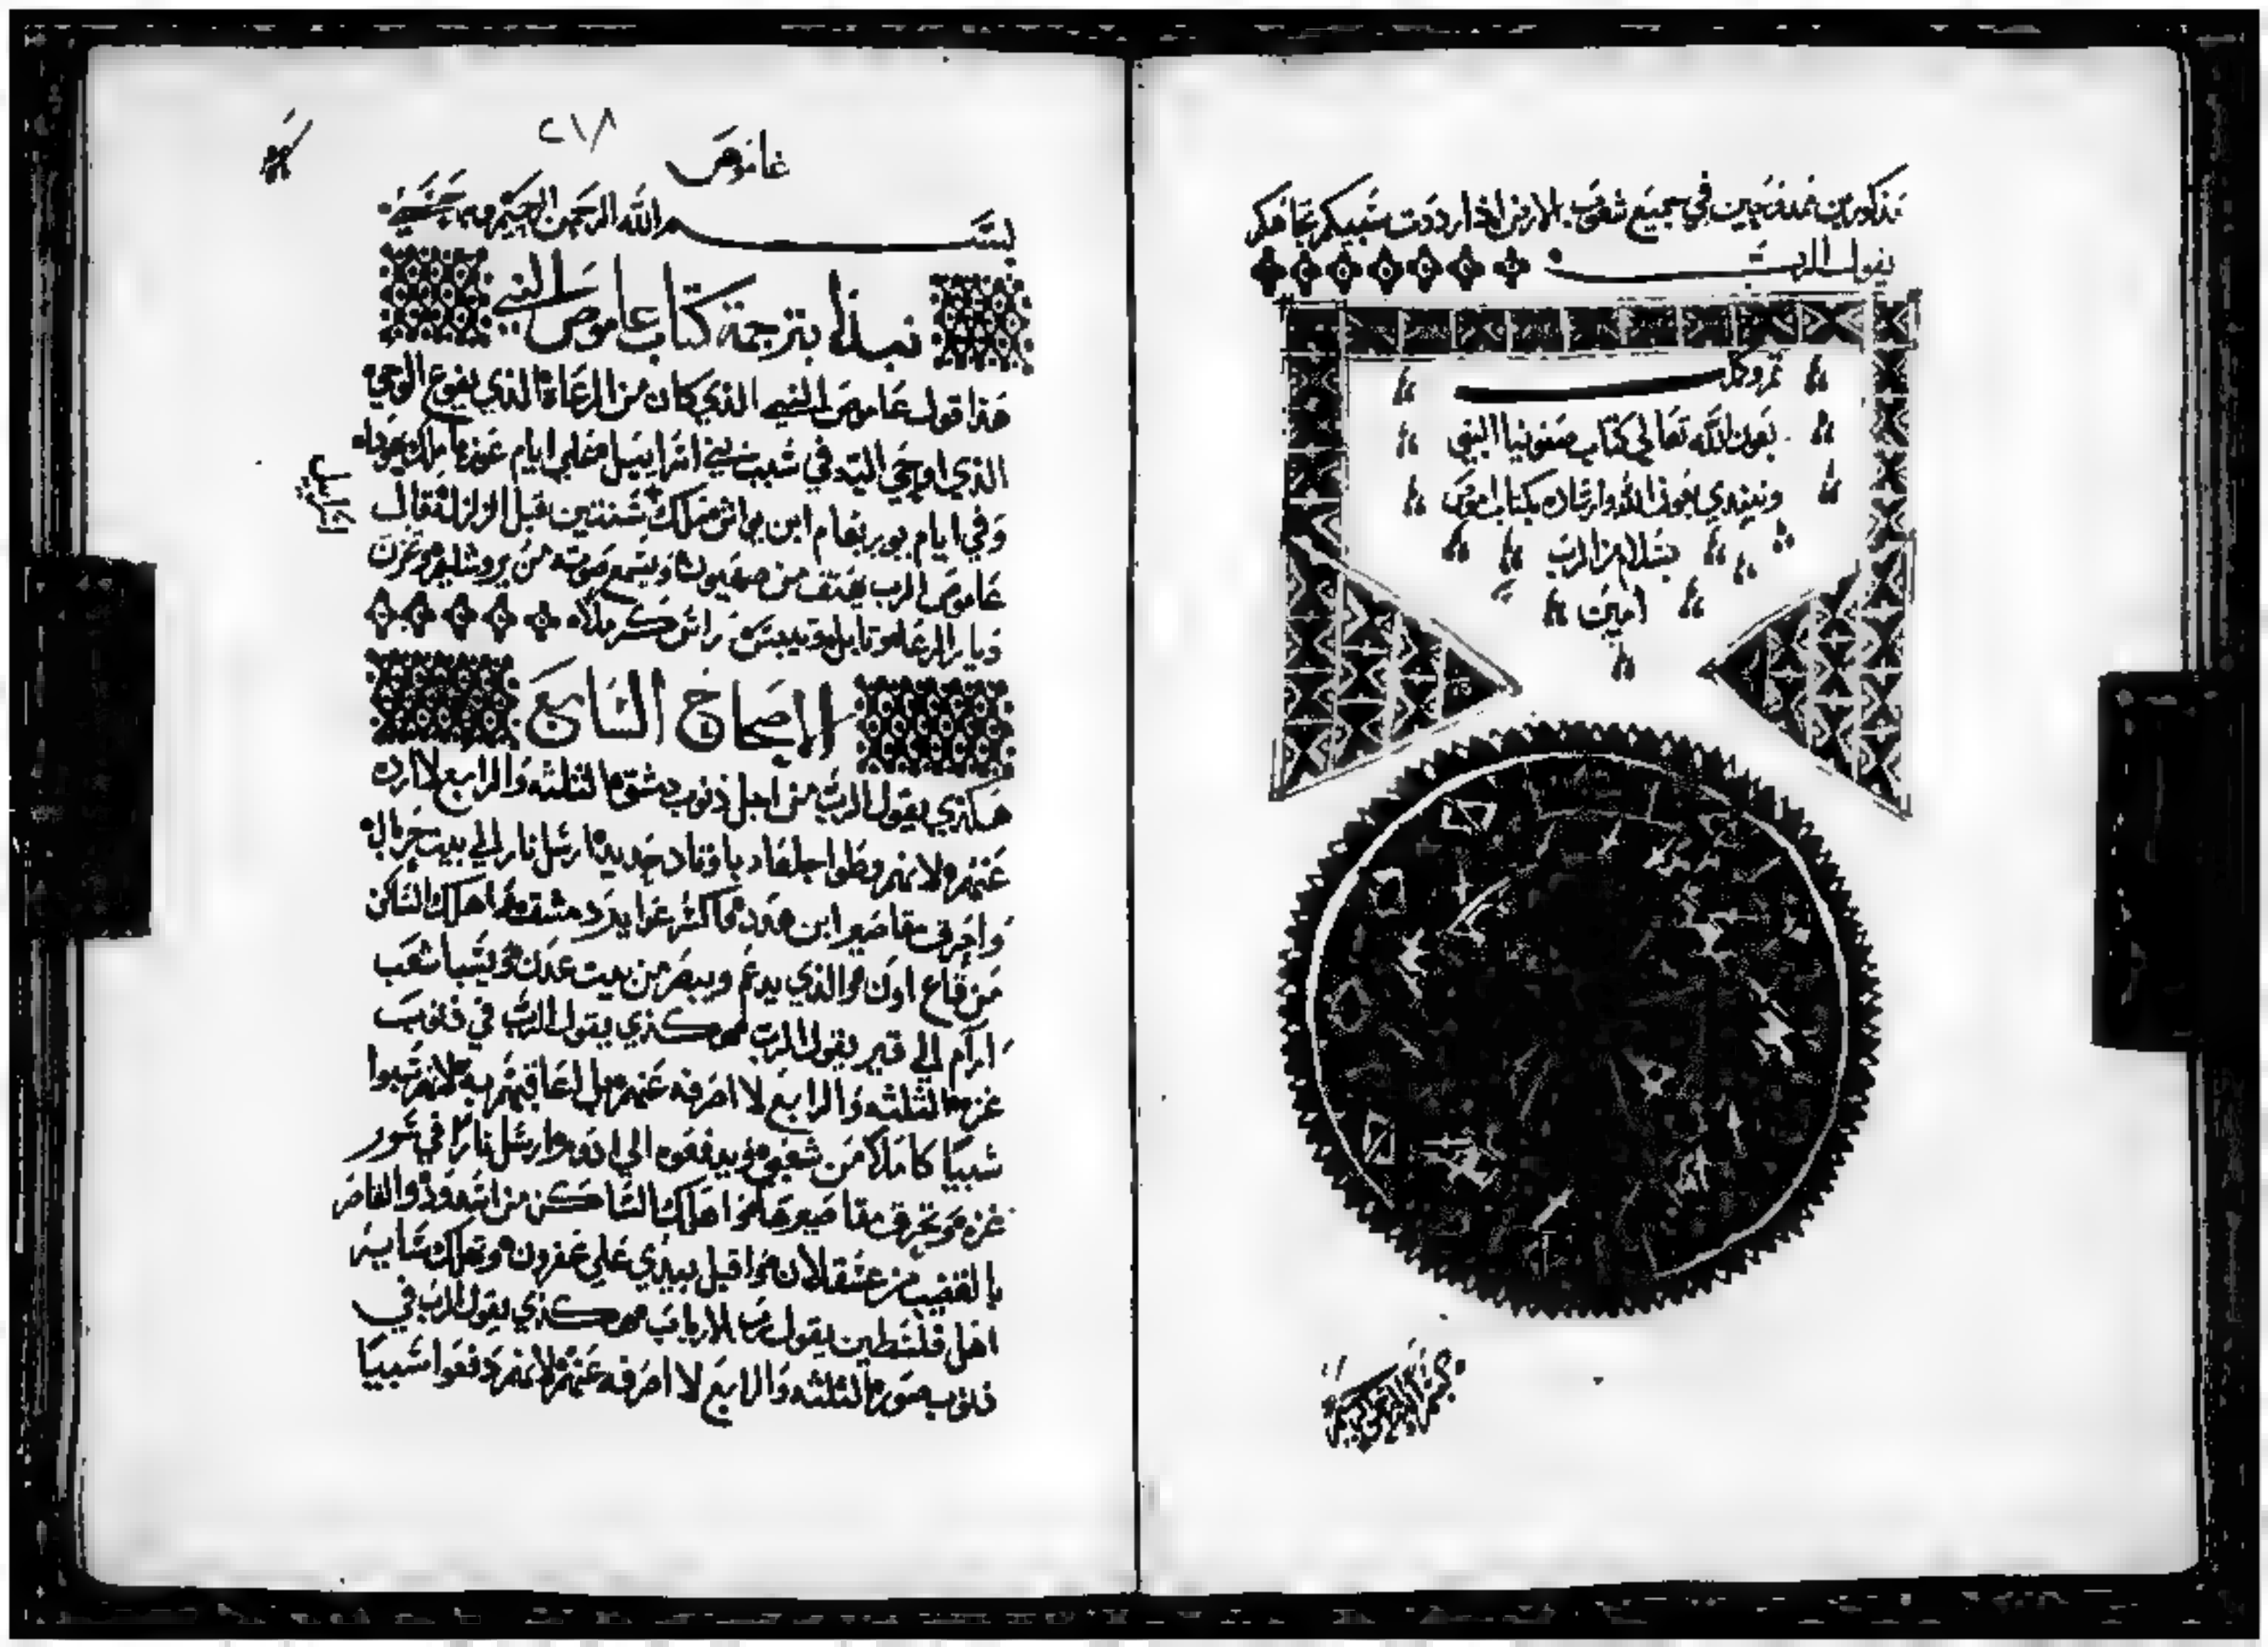 مذكورين ممدوحين في جميع شعوب الارض اذا رددت سبيكم عاهكر
يقول الرب
تم وكمل
بعون الله تعالي كتاب صفونيا النبي
ونبتدي بعون الله وارشاده بكتاب اموص
بسلام من الرب
امين
غاموص
٢١٨
بسم الله الرحمن الرحيم وبه
نبدا بترجمة كتاب عاموص النبي
هذا قول عاموص النبي الذي كان من الرعاة الذي بقوع الوحي
الذي اوحي اليه في شعب بني اسراييل علي ايام عوزيا ملك يهودا
وفي ايام يوربعام ابن يواش ملك بسنتين قبل الزلزلة فقال
اسراييل
عاموص الرب يهتف من صهيون ويسمع صوته من يروشليم وتحزن
ديار الرعاه وتابل وتيبس راس كرملا
الاصحاح السابع
هكذي يقول الرب من اجل ذنوب دمشق الثلثه والرابع لا ارده
عنهم لانهم وطوا جلعاد باوتاد حديد ارسل نار الي بيت حزايل
واحرق مقاصير ابن هدد واكسر عوايد دمشق واهلك الساكن
من قاع اون والذي يدعم ويبصر من بيت عدن ويسبا شعب
ارام الي قير يقول الرب هكذي يقول الرب في ذنوب
غزه الثلثه والرابع لا اصرفه عنهم بل اعاقبهم به لانهم سبوا
سبيا كاملا من شعبي ويدفعوه الي ادوم وارسل نارا في سور
غزه وتحرق مقاصيرها واهلك الساكن من اشدود والقاصر
بالقضيب من عسقلان واقبل بيدي علي عقرون وتهلك ساير
اهل فلسطين يقول رب الارباب هكذي يقول الرب في
ذنوب صور الثلثه والرابع لا اصرفه عنهم لانهم دفعوا سبيا